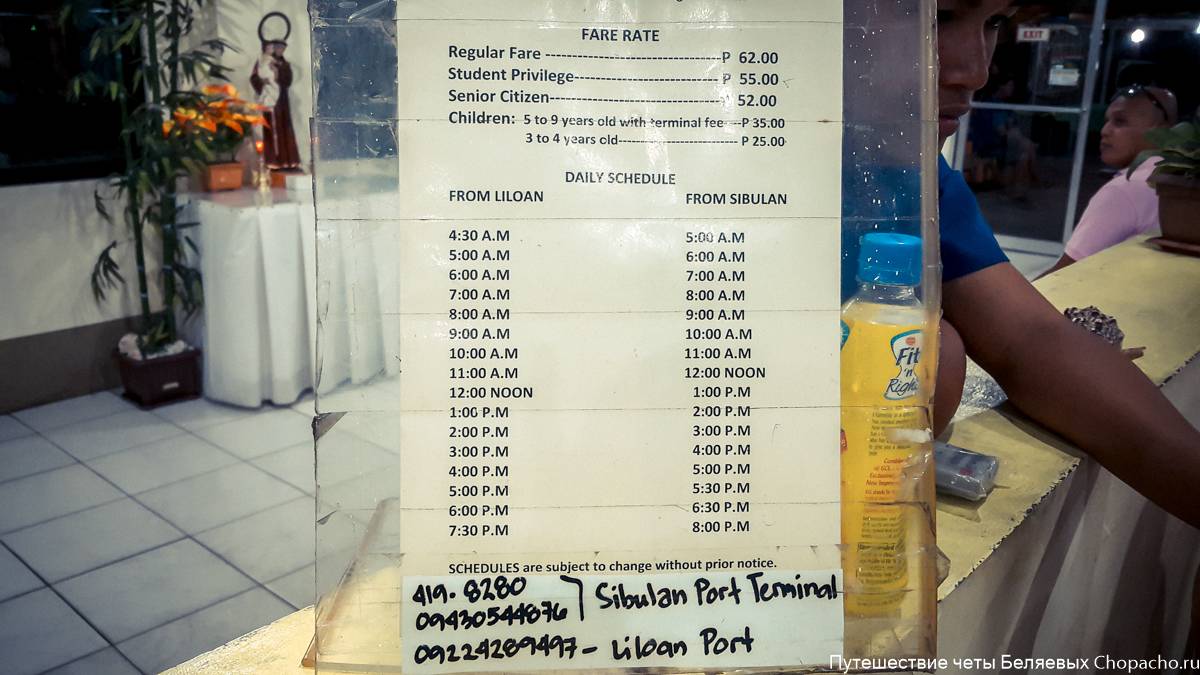 FARE RATE
Regular Fare ------------------------------------P 62.00
Student Privilege------------------------------P 55.00
Senior Citizen-----------------------------------P 52.00
Children: 5 to 9 years old with terminal fee----P 35.00
3 to 4 years old------------------------- P 25.00
DAILY SCHEDULE
FROM LILOAN FROM SIBULAN
4:30 A.M 5:00 A.M
5:00 A.M 6:00 A.M
6:00 A.M 7:00 A.M
7:00 A.M 8:00 A.M
8:00 A.M 9:00 A.M
9:00 A.M 10:00 A.M
10:00 A.M 11:00 A.M
11:00 A.M 12:00 NOON
12:00 NOON 1:00 P.M
1:00 P.M 2:00 P.M
2:00 P.M 3:00 P.M
3:00 P.M 4:00 P.M
4:00 P.M 5:00 P.M
5:00 P.M 5:30 P.M
6:00 P.M 6:30 P.M
7:30 P.M 8:00 P.M
SCHEDULES are subject to change without prior notice.
419.8280
09430544876 } Sibulan Port Terminal
09224289497 – Liloan Port
EXIT
Fit
'n
Right
Путешествие четы Беляевых Chopacho.ru